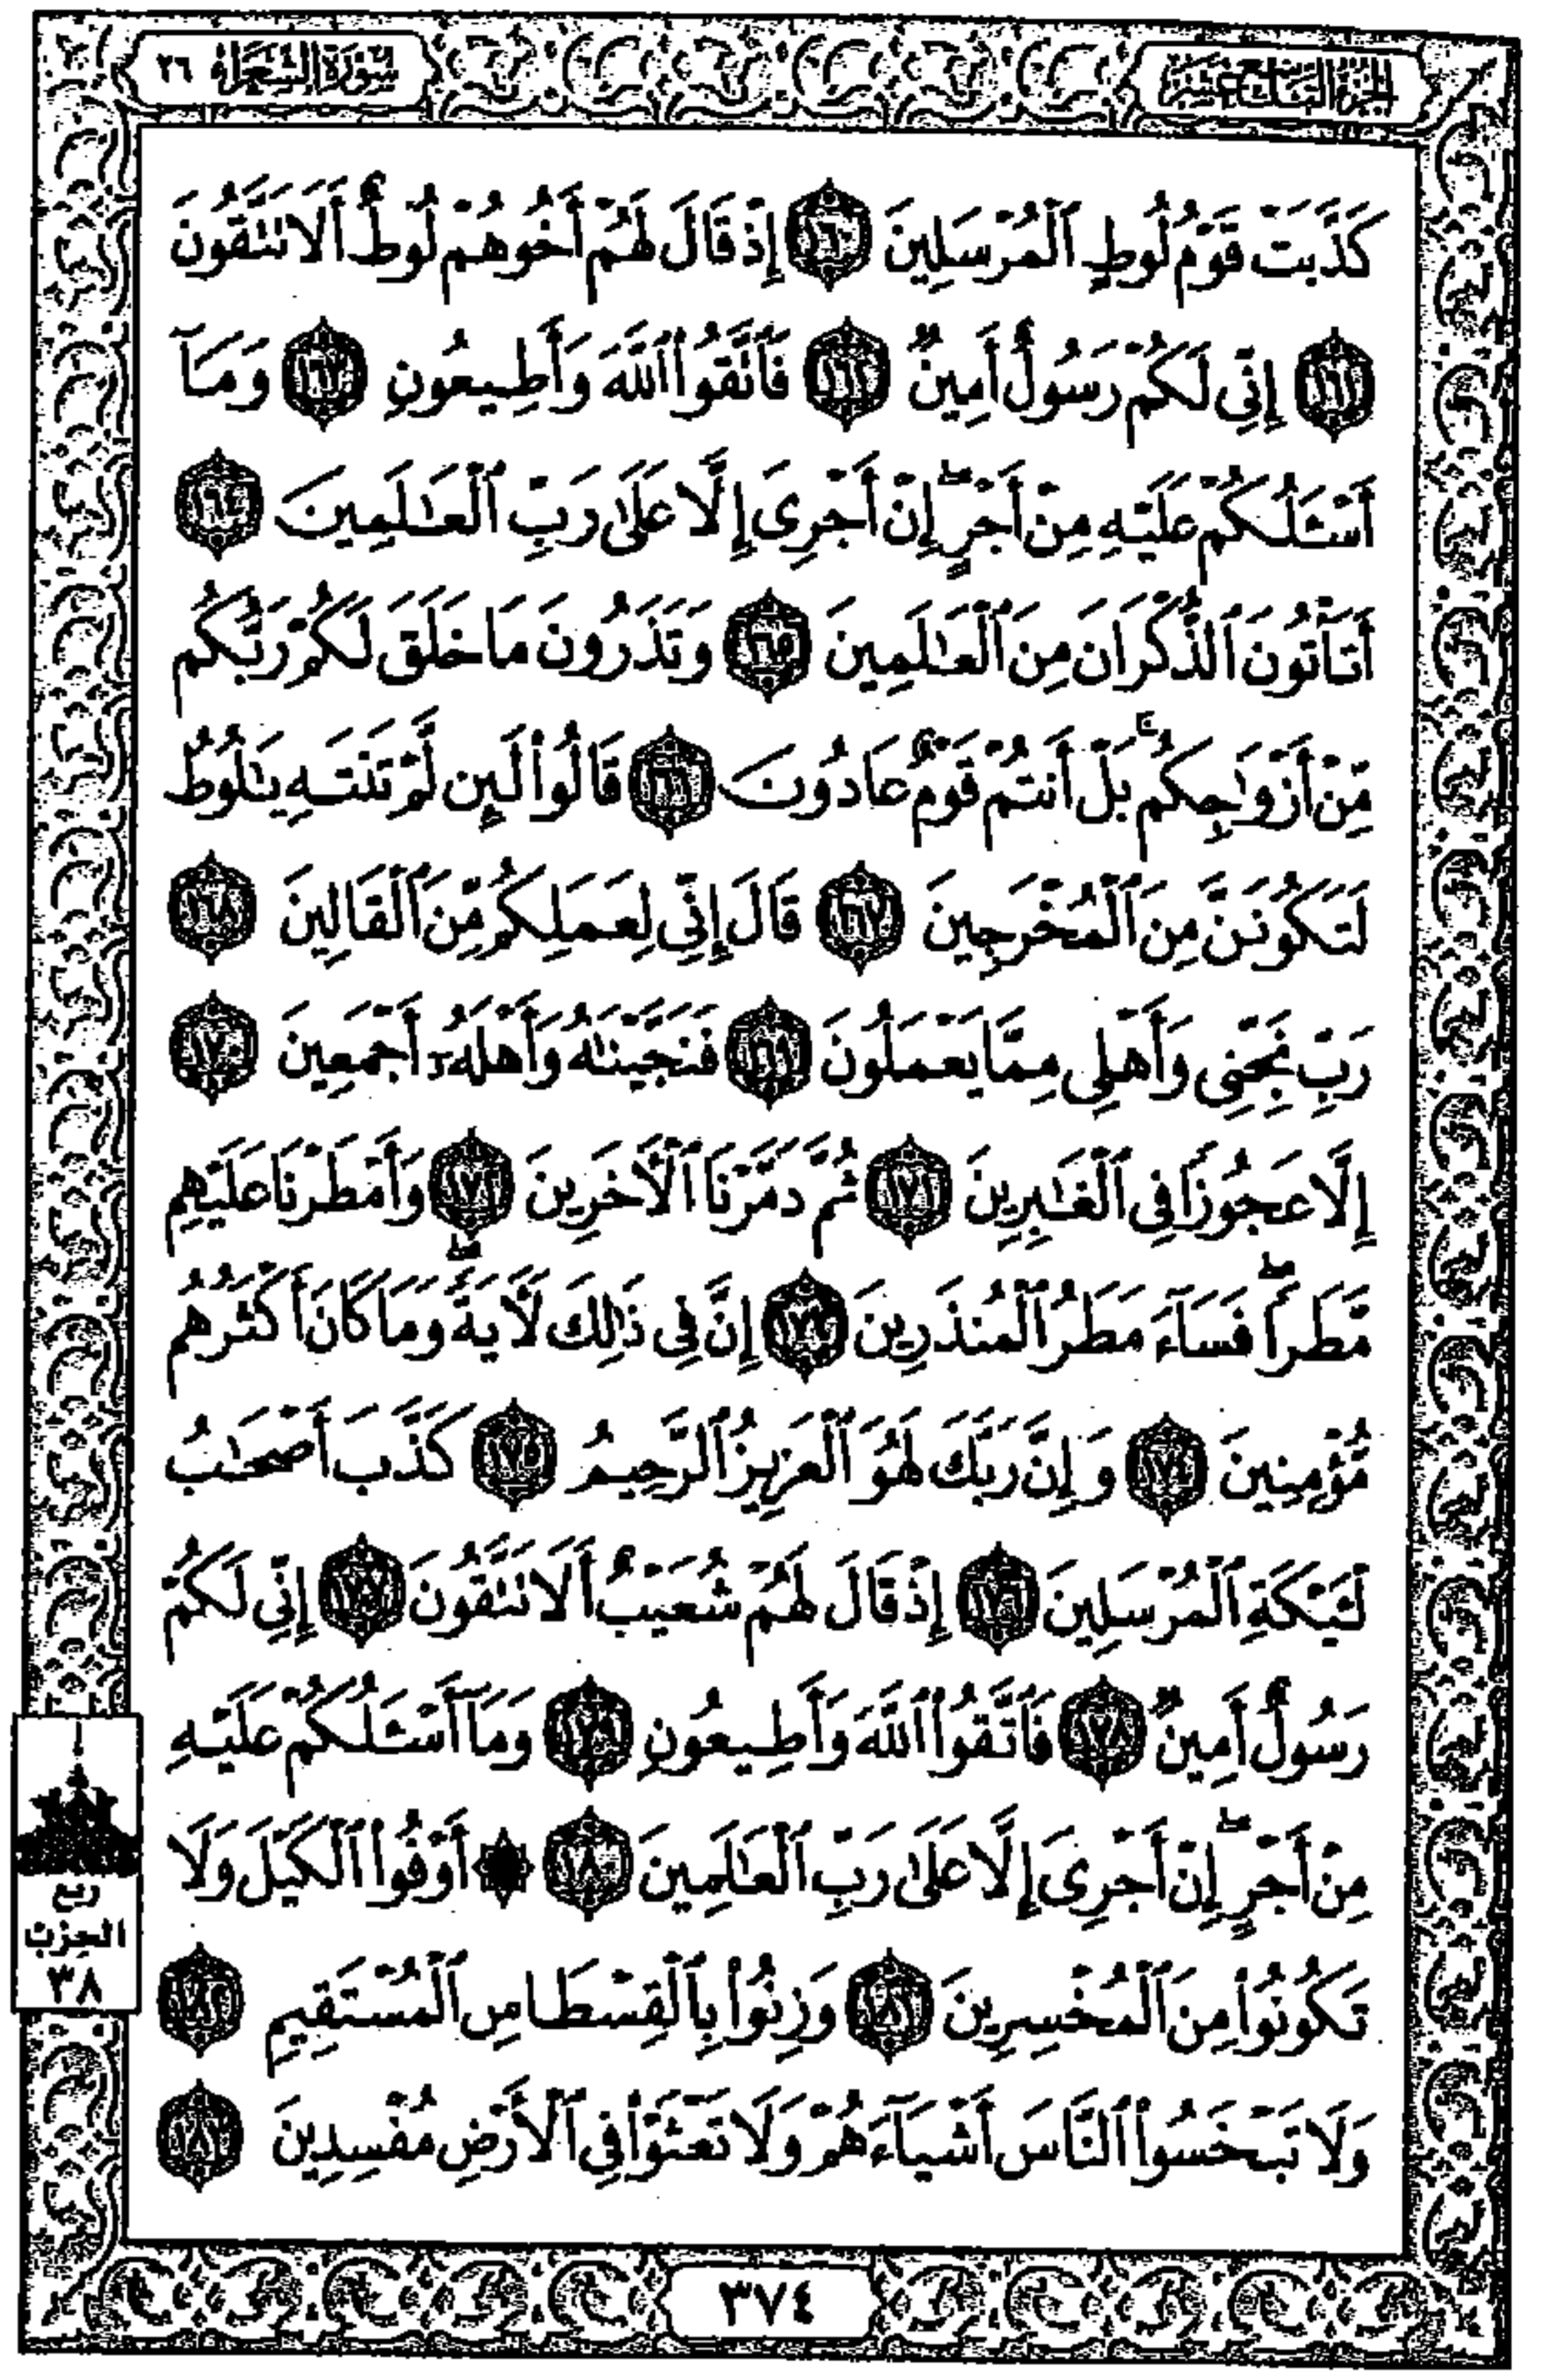 الجزء التاسع عشر
سورة الشعراء ٢٦
كَذَّبَتْ قَوْمُ لُوطٍ ٱلْمُرْسَلِينَ ١٦٠ إِذْ قَالَ لَهُمْ أَخُوهُمْ لُوطٌ أَلَا تَتَّقُونَ
١٦١ إِنِّى لَكُمْ رَسُولٌ أَمِينٌ ١٦٢ فَٱتَّقُوا۟ ٱللَّهَ وَأَطِيعُونِ ١٦٣ وَمَآ
أَسْـَٔلُكُمْ عَلَيْهِ مِنْ أَجْرٍ ۖ إِنْ أَجْرِىَ إِلَّا عَلَىٰ رَبِّ ٱلْعَـٰلَمِينَ ١٦٤
أَتَأْتُونَ ٱلذُّكْرَانَ مِنَ ٱلْعَـٰلَمِينَ ١٦٥ وَتَذَرُونَ مَا خَلَقَ لَكُمْ رَبُّكُم
مِّنْ أَزْوَٰجِكُم ۚ بَلْ أَنتُمْ قَوْمٌ عَادُونَ ١٦٦ قَالُوا۟ لَئِن لَّمْ تَنتَهِ يَـٰلُوطُ
لَتَكُونَنَّ مِنَ ٱلْمُخْرَجِينَ ١٦٧ قَالَ إِنِّى لِعَمَلِكُم مِّنَ ٱلْقَالِينَ ١٦٨
رَبِّ نَجِّنِى وَأَهْلِى مِمَّا يَعْمَلُونَ ١٦٩ فَنَجَّيْنَـٰهُ وَأَهْلَهُۥٓ أَجْمَعِينَ ١٧٠
إِلَّا عَجُوزًا فِى ٱلْغَـٰبِرِينَ ١٧١ ثُمَّ دَمَّرْنَا ٱلْـَٔاخَرِينَ ١٧٢ وَأَمْطَرْنَا عَلَيْهِم
مَّطَرًا ۖ فَسَآءَ مَطَرُ ٱلْمُنذَرِينَ ١٧٣ إِنَّ فِى ذَٰلِكَ لَـَٔايَةً ۖ وَمَا كَانَ أَكْثَرُهُم
مُّؤْمِنِينَ ١٧٤ وَإِنَّ رَبَّكَ لَهُوَ ٱلْعَزِيزُ ٱلرَّحِيمُ ١٧٥ كَذَّبَ أَصْحَـٰبُ
لْـَٔيْكَةِ ٱلْمُرْسَلِينَ ١٧٦ إِذْ قَالَ لَهُمْ شُعَيْبٌ أَلَا تَتَّقُونَ ١٧٧ إِنِّى لَكُمْ
رَسُولٌ أَمِينٌ ١٧٨ فَٱتَّقُوا۟ ٱللَّهَ وَأَطِيعُونِ ١٧٩ وَمَآ أَسْـَٔلُكُمْ عَلَيْهِ
مِنْ أَجْرٍ ۖ إِنْ أَجْرِىَ إِلَّا عَلَىٰ رَبِّ ٱلْعَـٰلَمِينَ ١٨٠ ۞ أَوْفُوا۟ ٱلْكَيْلَ وَلَا
تَكُونُوا۟ مِنَ ٱلْمُخْسِرِينَ ١٨١ وَزِنُوا۟ بِٱلْقِسْطَاسِ ٱلْمُسْتَقِيمِ ١٨٢
وَلَا تَبْخَسُوا۟ ٱلنَّاسَ أَشْيَآءَهُمْ وَلَا تَعْثَوْا۟ فِى ٱلْأَرْضِ مُفْسِدِينَ ١٨٣
ربع
الحزب
٣٨
٣٧٤